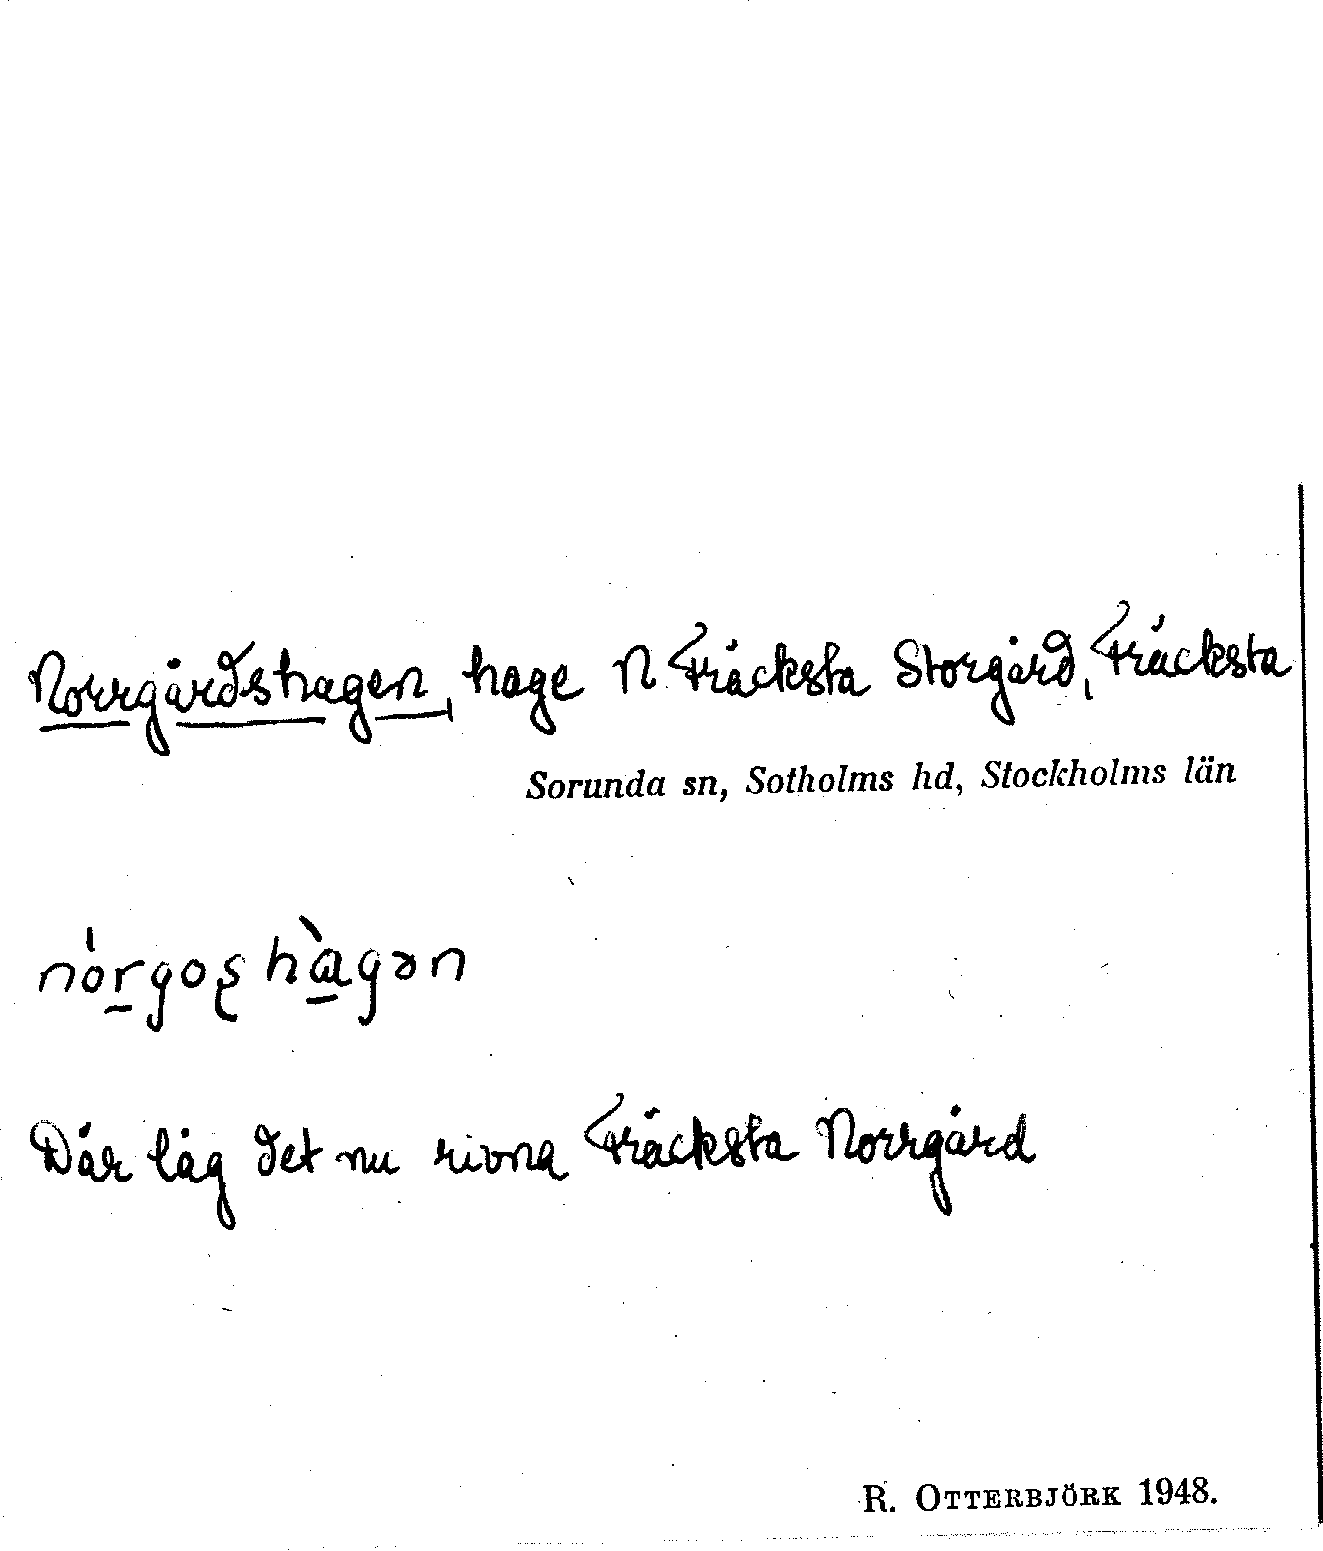 Norrgårdshagen, hage N Fräcksta Storgård, Fräcksta
Sorunda sn, Sotholms hd, Stockholms län
Där låg det nu rivna Fräcksta Norrgård
R. OTTERBJÖRK 1948.